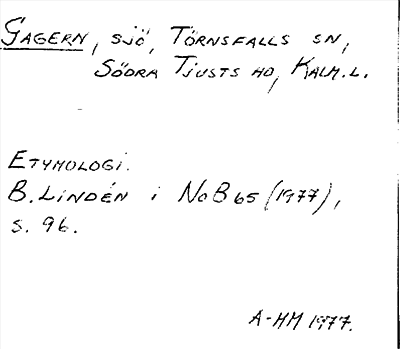 GAGERN, SJÖ, TÖRNSFALLS SN,
SÖDRA TJUSTS HD, KALM. L.
ETYMOLOGI.
B. LINDÉN i NoB 65 (1977),
S. 96.
A-HM 1977.